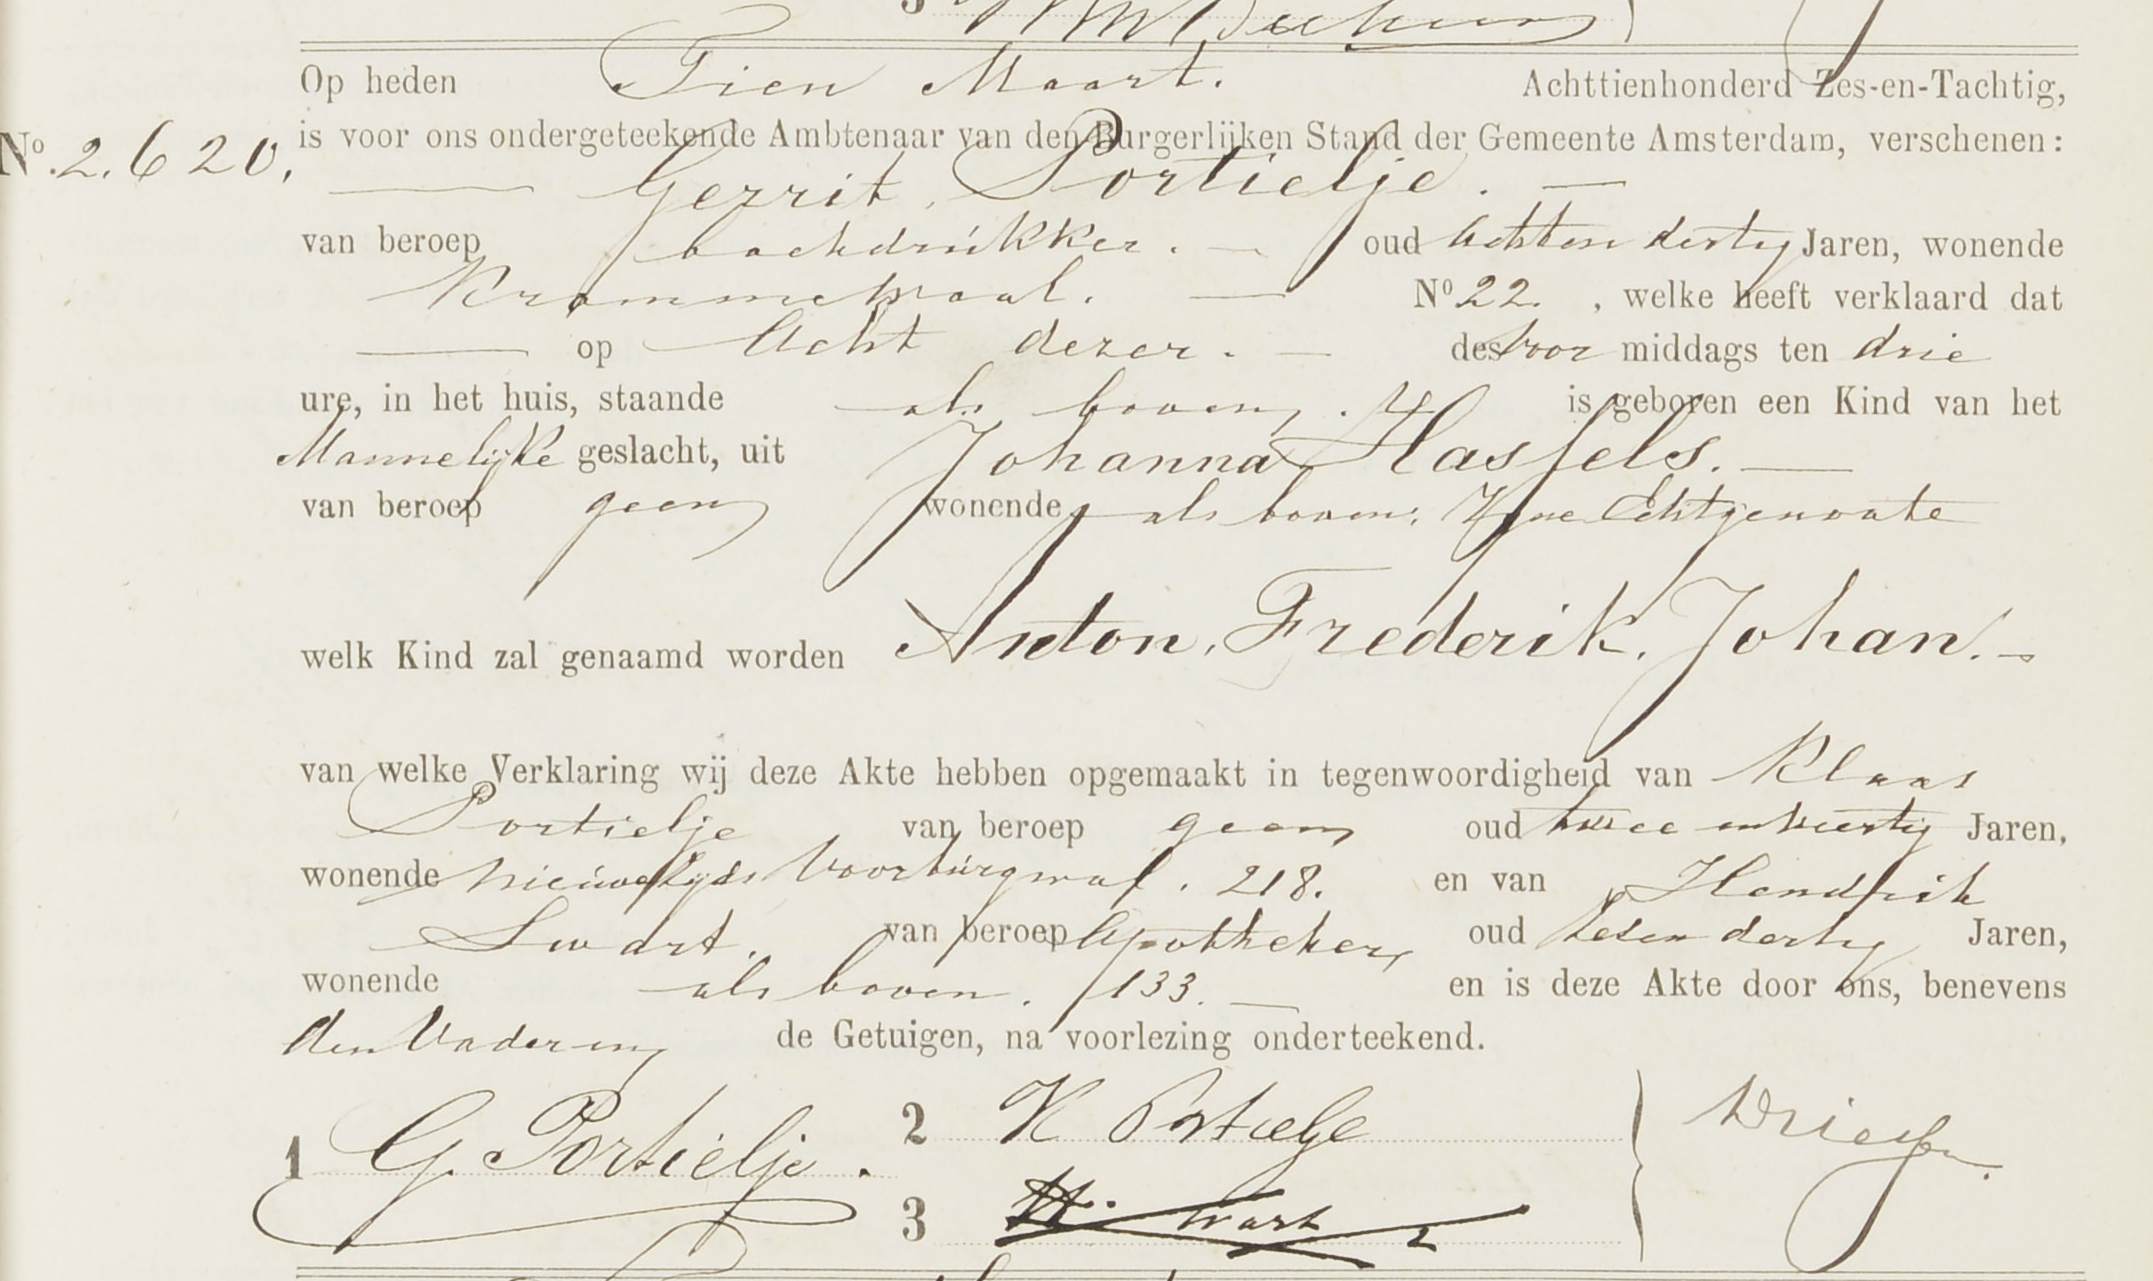 3
Op heden Tien Maart. Achttienhonderd Zes-en-Tachtig,
No. 2.620. is voor ons ondergeteekende Ambtenaar van den Burgerlijken Stand der Gemeente Amsterdam, verschenen:
Gerrit, Portielje.
van beroep boekdrukker. oud achten dertig Jaren, wonende
Krommewaal. No 22. , welke heeft verklaard dat
op Acht dezer. des voor middags ten drie
ure, in het huis, staande als boven, is geboren een Kind van het
Mannelijke geslacht, uit Johanna Hassels.
van beroep geen wonende als boven, Zyne Echtgenoote
welk Kind zal genaamd worden Anton, Frederik, Johan.
van welke Verklaring wij deze Akte hebben opgemaakt in tegenwoordigheid van Klaas
Portielje van beroep geen oud twee en veertig Jaren,
wonende Nieuwezyds Voorburgwal. 218. en van Hendrik
Swart. van beroep Apotheker, oud zesen dertig Jaren,
wonende als boven. 133. en is deze Akte door ons, benevens
den Vader en de Getuigen, na voorlezing onderteekend.
1 G. Portielje. 2 K Portielje
3 H. Swart